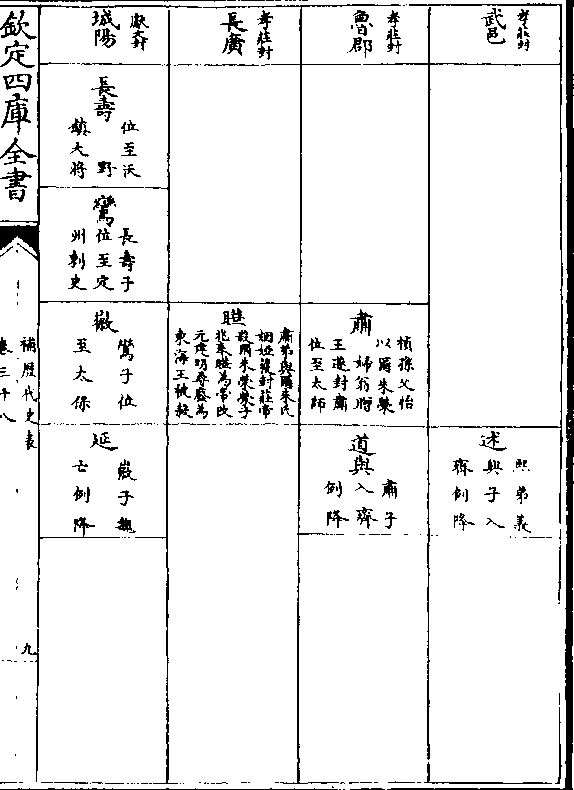 武邑
孝莊封
述
熙弟義
興子入
齊例降
魯郡
孝莊封
肅
楨孫父怡
以爾朱榮
婦翁贈
王遂封肅
位至太師
道與
肅子
入齊
例降
長廣
孝莊封
瞱
肅弟與爾朱氏
姻婭復封莊帝
殺爾朱榮榮子
兆來瞱為帝改
元建明尋廢為
東海王被殺
城陽
獻文封
長壽
位至沃
野
鎮大將
鸞
長壽子
位至定
州刺史
徽
鸞子位
至太保
延
徽子魏
亡例降
欽定四庫全書
補歷代史表
卷三十八
九